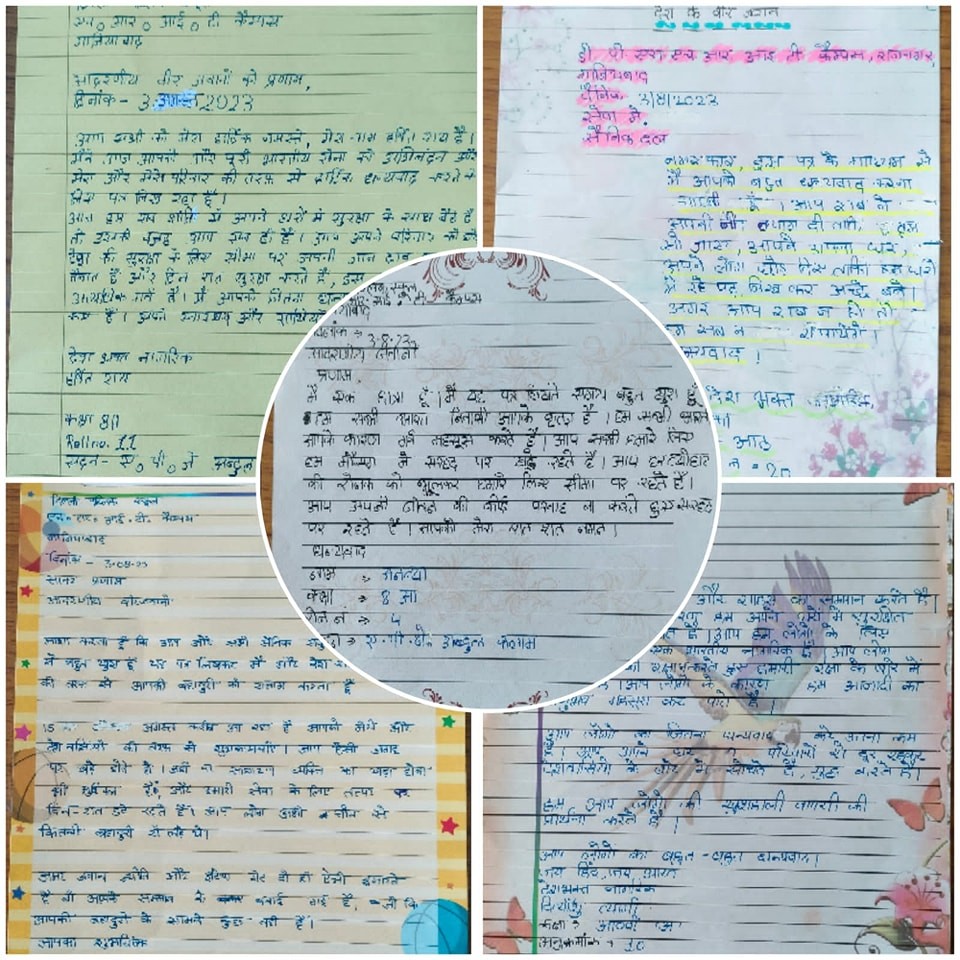 एन॰ आर॰ आई॰ टी कैम्पस
गाजियाबाद
आदरणीय वीर जवानों को प्रणाम,
दिनांक - 3 अगस्त 2023
आप सभी को मेरा हार्दिक नमस्ते, मेरा नाम हर्षित राय है।
मैं आज आपको और पूरी भारतीय सेना को अभिनंदन और
मेरा और मेरे परिवार की तरफ से हार्दिक धन्यवाद करने के
लिए पत्र लिख रहा हूँ।
आज हम सब शांति से अपने घरों में सुरक्षा के साथ बैठे हैं
तो उसकी वजह आप सब ही हैं। आप अपने परिवार को
देश की सुरक्षा के लिए सीमा पर अपनी जान
तैनात हैं और दिन रात सुरक्षा करते हैं, हम
मैं आपको जितना
कम है। आपके स्वास्थ्य और
देश भक्त नागरिक
हर्षित राय
कक्षा 8
Roll no. 11
सदन - ए॰ पी॰ जे अब्दुल
देश के वीर जवान
डी पी एस एच आर आई टी कैम्पस, राजनगर,
गाजियाबाद
दिनांक 3/8/2023
सेवा में,
सैनिक दल
नमस्कार, इस पत्र के माध्यम से
मैं आपको बहुत धन्यवाद करना
चाहती हूँ। आप सब ने
आपकी नींद त्याग दी ताकि हम
सो जाए, आपने अपना घर,
अपने लोग छोड़ दिए ताकि हम
अगर आप सब न हो तो
हम सब न
धन्यवाद!
देश भक्त नागरिक,
आठ
= 20
कैम्पस
दिनांक :- 3-8-23
आदरणीय सैनिकों
प्रणाम,
मैं एक छात्रा हूँ। मैं यह पत्र लिखते समय बहुत खुश हूँ
हम सभी भारत निवासी आपके कृतज्ञ हैं। हम सभी
आपके कारण गर्व महसूस करते हैं। आप सभी हमारे लिए
हर मौसम में सरहद पर खड़े रहते हैं। आप हर त्योहार
की रौनक को भूलकर हमारे लिए सीमा पर रहते हैं।
आप अपनी जीवन की कोई परवाह ना करते हुए सरहद
पर रहते हैं। आपको मेरा शत शत नमन।
धन्यवाद
नाम :- अनन्या
कक्षा :- 8 आ
रोल नं :- 5
ए.पी.जे. अब्दुल कलाम
दिल्ली पब्लिक स्कूल
एच॰ आर॰ आई॰ टी॰ कैम्पस
गाजियाबाद
दिनांक - 3-08-23
सादर प्रणाम
आदरणीय वीर जवानों
आशा करता हूँ कि आप और सभी सैनिक
में बहुत खुश हैं यह पत्र लिखकर मैं और देश
की तरफ से आपकी बहादुरी को सलाम करता हूँ
15 अगस्त करीब आ रहा है आपको मेरी और
देशवासियों की तरफ से शुभकामनाएं। आप ऐसी जगह
पर खड़े होते हैं। जहाँ पे साधारण व्यक्ति का खड़ा होना
भी मुश्किल है और हमारी सेवा के लिए तत्पर
दिन-रात डटे रहते हैं। आप लोग
कितनी बहादुरी से लड़े थे।
अमर जवान ज्योति और इंडिया गेट दो ही ऐसी इमारतें
हैं जो आपके सम्मान में बनाई गई हैं, जो कि
आपकी बहादुरी के सामने कुछ नहीं हैं।
आपका शुभचिंतक
और शहादत का सम्मान करते हैं।
हम अपने घरों में सुरक्षित
हैं। आप हम लोगों के लिए
एक भारतीय नागरिक हैं। आप लोग
हमारी रक्षा के बारे में
आप लोगों के कारण हम आजादी का
महसूस कर पाते हैं।
आप लोगों का जितना धन्यवाद करे उतना कम
है। आप अपने घर व परिवारों से दूर रहकर
देशवासियों के बारे में सोचते हैं, युद्ध करते हैं।
हम आप लोगों की खुशहाली वापसी की
प्रार्थना करते हैं।
आप लोगों का बहुत-बहुत धन्यवाद।
जय हिंद, जय भारत
देशभक्त नागरिक
दिव्यांशु त्यागी
कक्षा :- आठवीं 'अ'
अनुक्रमांक :- 10